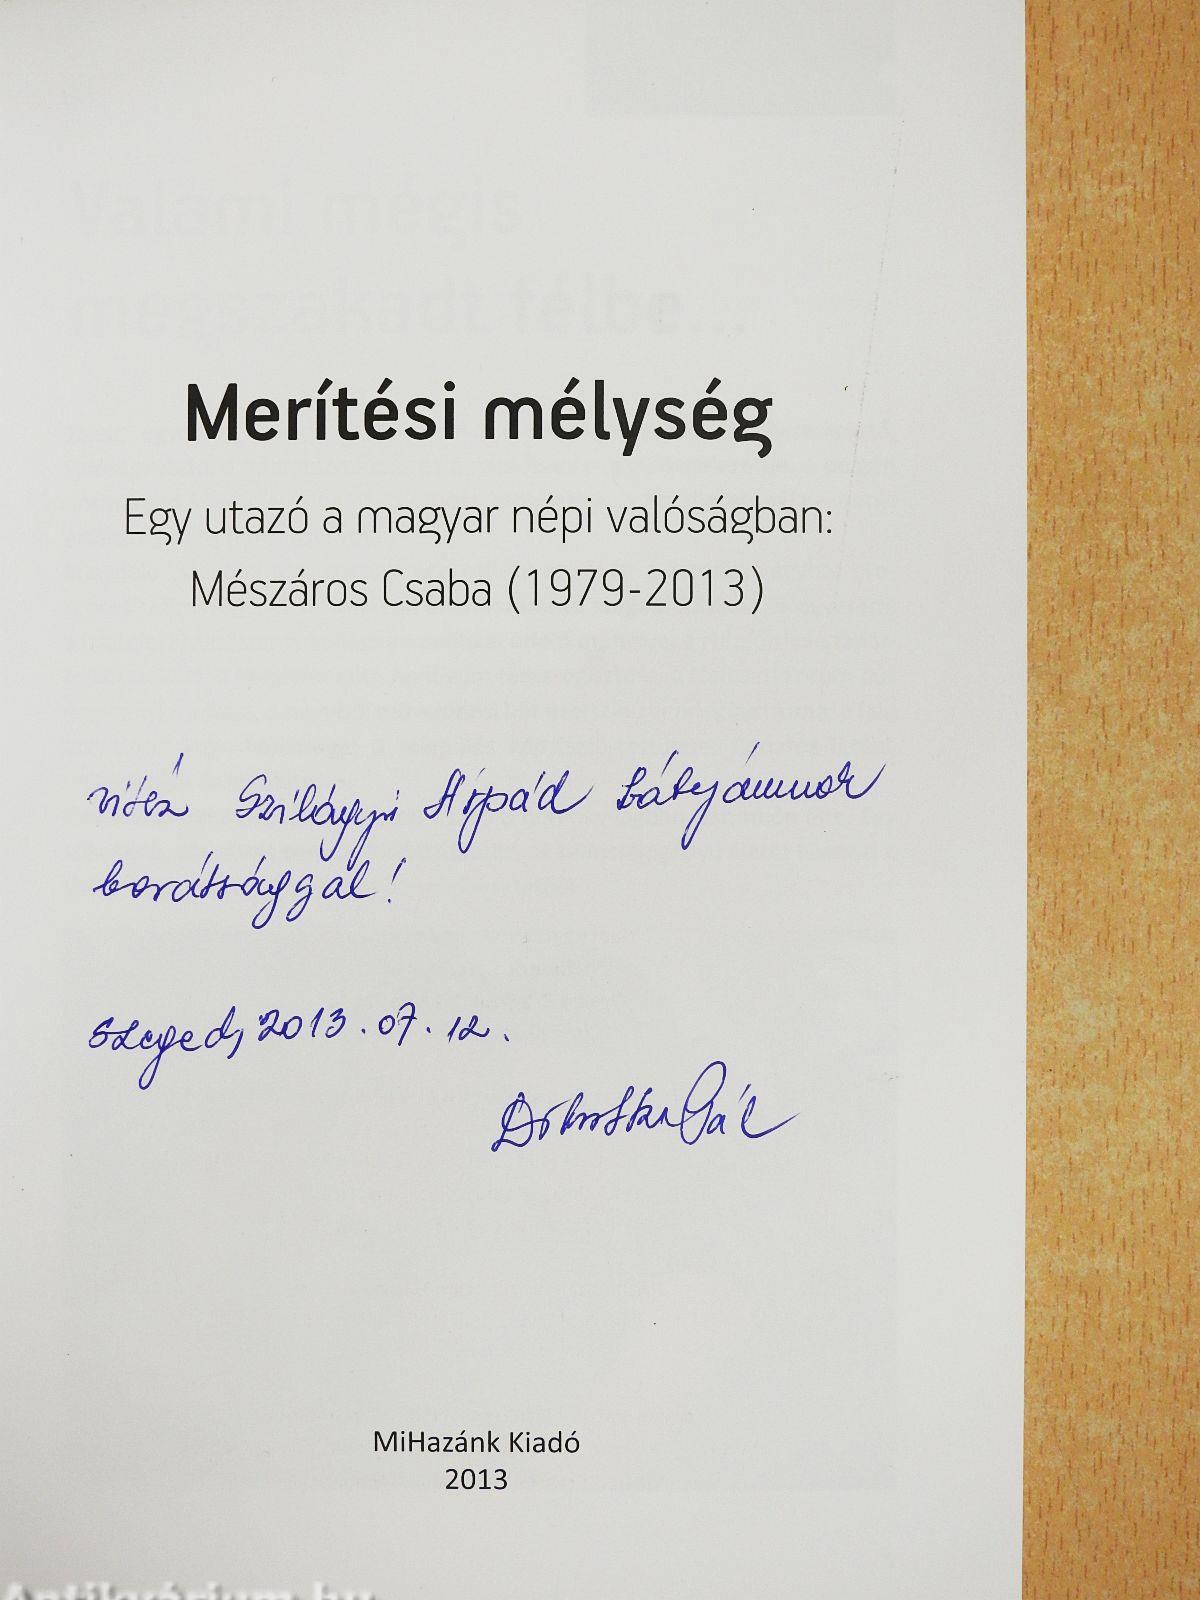 Valami mégis
megszakadt félbe...
Merítési mélység
Egy utazó a magyar népi valóságban:
Mészáros Csaba (1979-2013)
vitéz Szilágyi Árpád bátyámnak
barátsággal!
Szeged, 2013.07.12.
Pál
MiHazánk Kiadó
2013
Antikvárium.hu